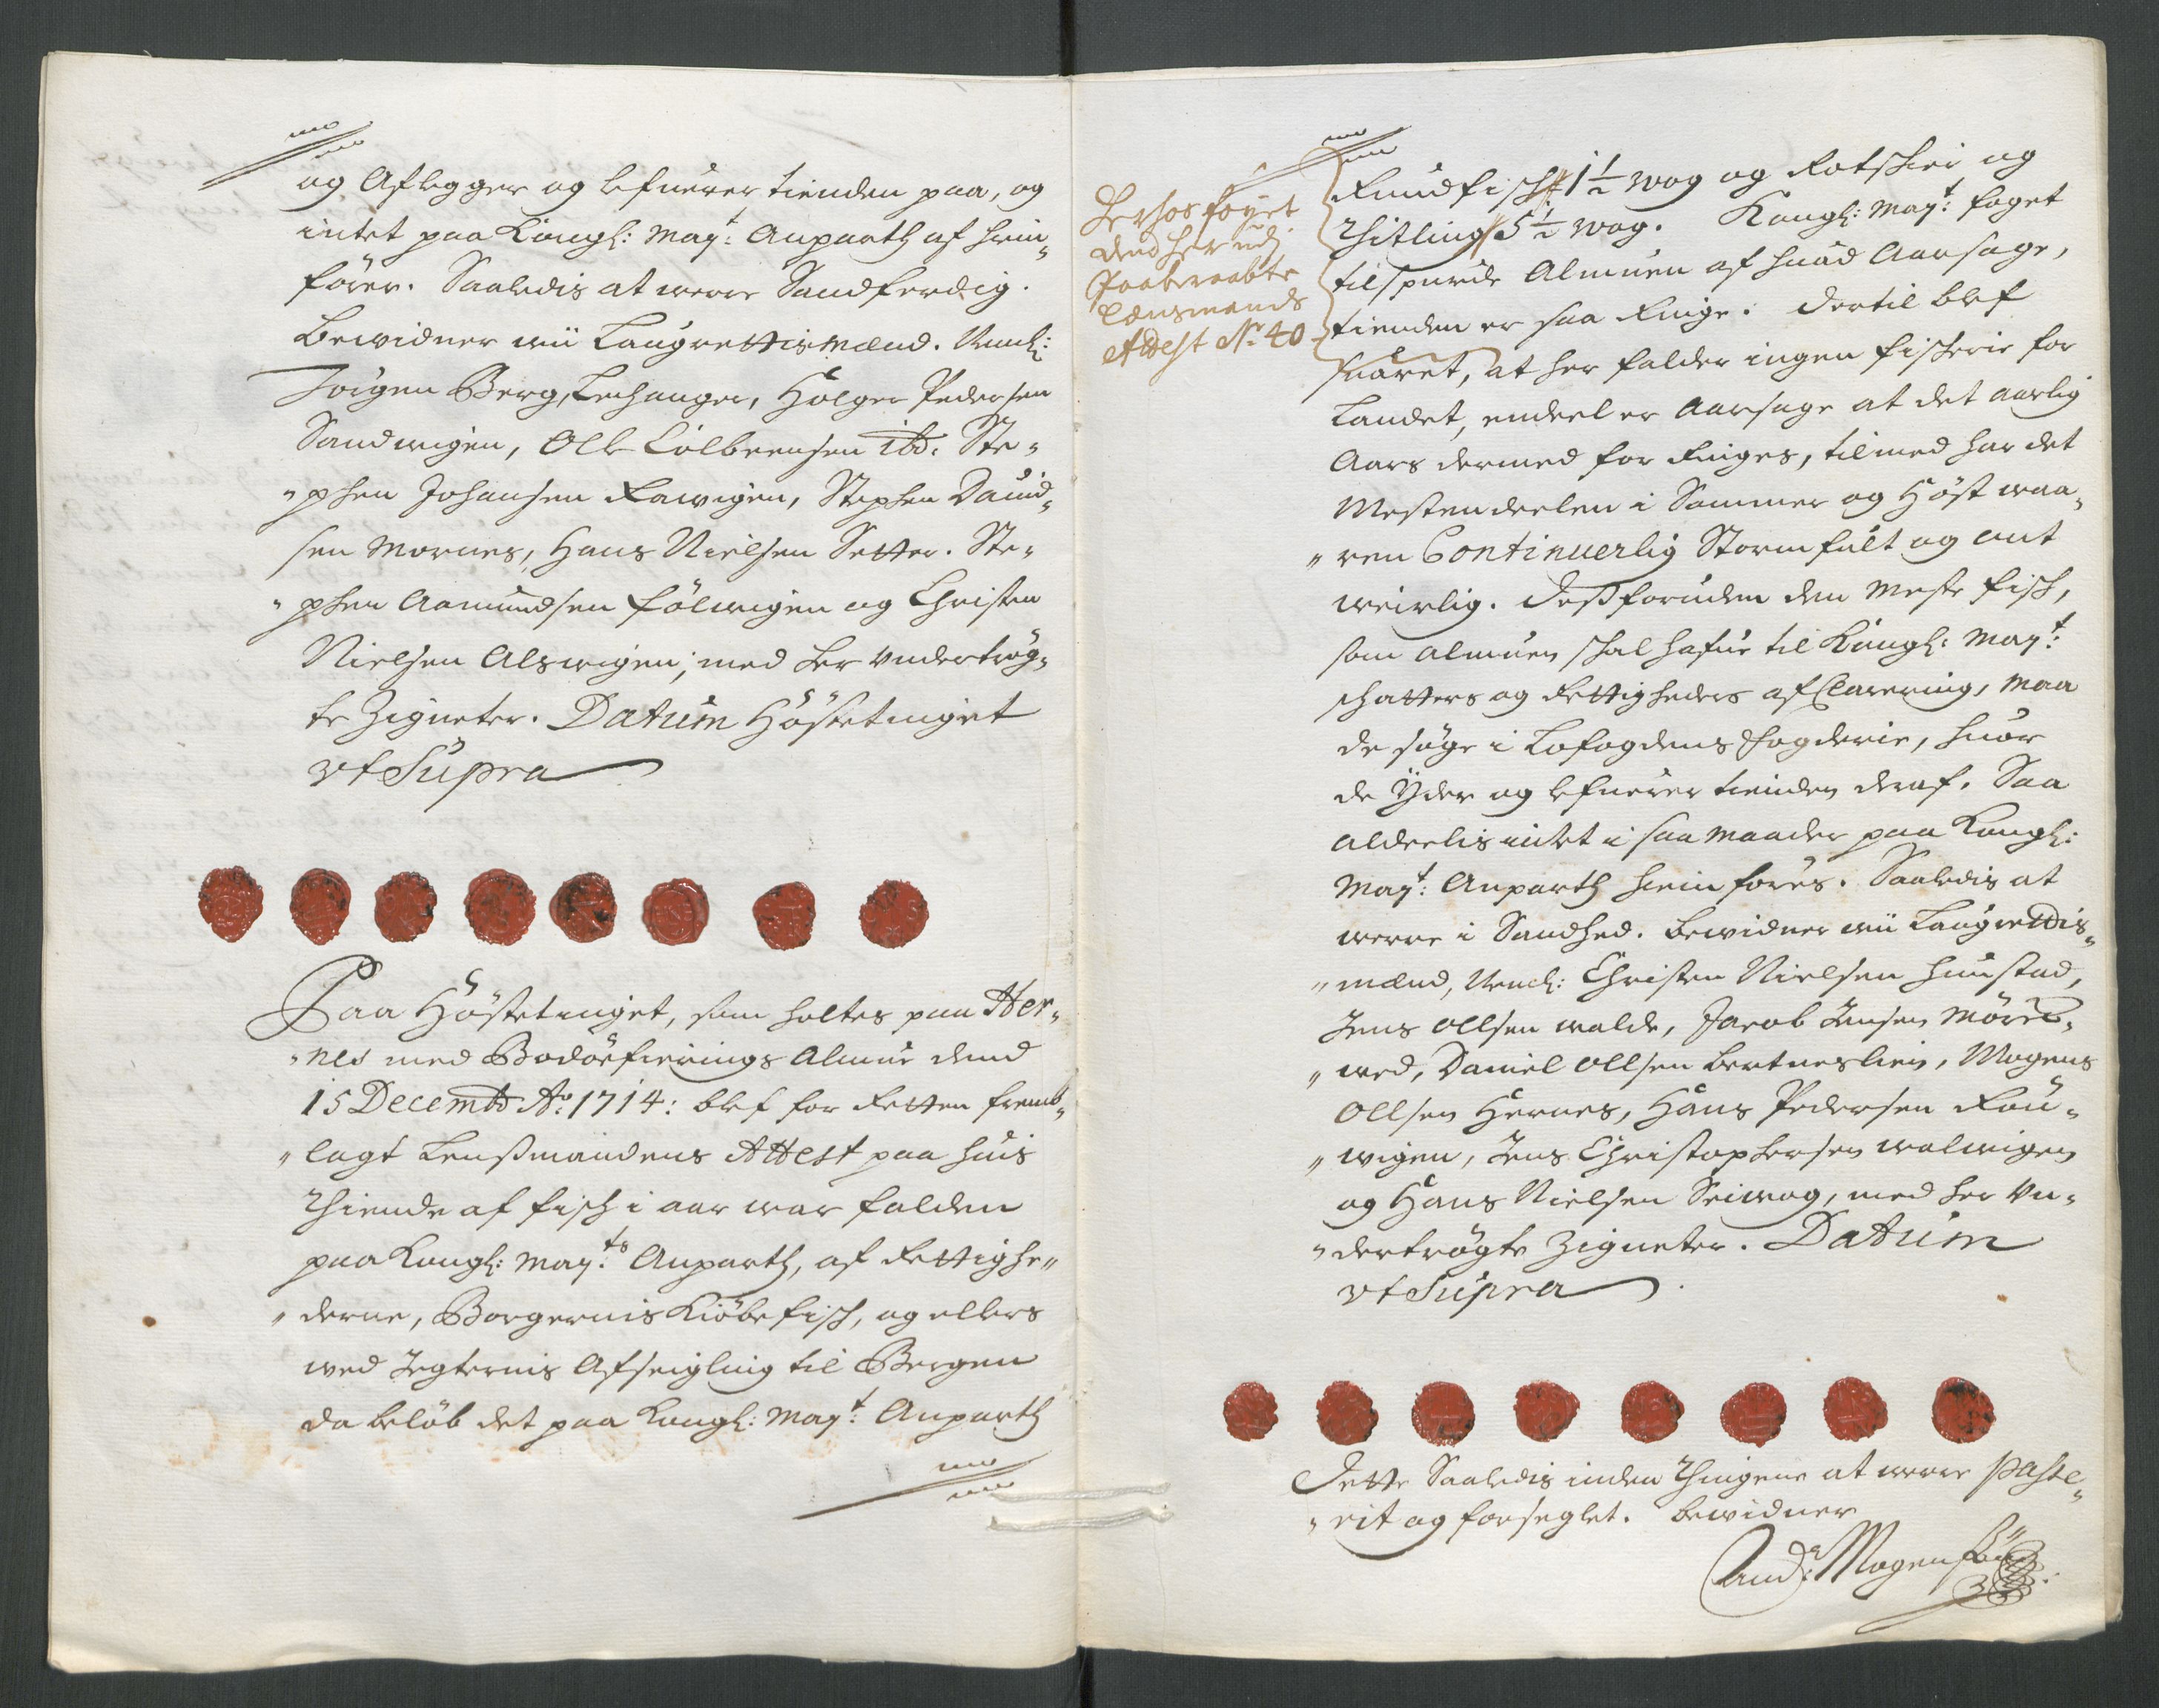 og Aflegger og lefuerer tienden paa, og
intet paa Kongl: May:t Anparth af hien„
fører. Saaledis at were Sandferdig.
Bewidner wii Laugrettismænd. Neml:
Jørgen Berg, Lechanger, Holger Pedersen
Sandwigen, Olle Colbeensen ibd: Ste„
„phen Johansen Rawigen, Stephen David„
sen Mornes, Hans Nielsen Setter. Ste„
„phen Aamundsen Følwigen og Christen
Nielsen Alswigen; med her vndertrøg„
te Zigneter. Datum Høstetinget
vt Supra
Paa Høstetinget, som holtes paa Her„
„nes med Bodøefierings Almue dend
15 Decembr Ao: 1714: blef for Retten fremb„
„lagt Lenßmandens Attest paa huis
Thiende af fisch i aar war falden
paa Kongl: May:ts Anparth, af Rettighe„
„derne, Borgernis Kiøbefisch, og ellers
wed Jegternis Afseigling til Bergen
da beløb det paa Kongl: May:t Anparth
Herhos føyet
dend her udj
Paaberaabte
Lensmands
Attest No 40
Rundfisch 1 1/2 wog og Rotskier og
Thitling 5 1/2 wog. Kongl: May:t foget
tilspurde Almuen af huad Aarsage,
tienden er saa Ringe. Dertil blef
suaret, at her falder ingen fischerie for
Landet, endeel er Aarsage at det aarlig
Aars dermed for Ringes, tilmed har det
Mestendeelen i Sommer og Høst waa„
„ren Continuerlig Stormfult og ont
weirlig. Deßforuden den meste fisch,
som almuen skal hafue til Kongl: May:t
schatters og Rettigheders afClarering, maa
de søge i Lofogdens Fogderie, huor
de Yder og lefuerer tienden deraf. Saa
aldeelis intet i saa maader paa Kongl:
May:t Anparth hienføres. Saaledis at
were i Sandhed. bewidner wii Laugrettis„
„mænd, Neml: Christen Nielsen Hunstad,
Jens Ollsen walde, Jacob Jensen Mører„
„wed, Daniel Ollsen Bertneslien, Mogens
Ollsen Hernes, Hans Pedersen Rau„
„wigen, Jens Christophersen walwigen
og Hans Nielsen Seiwog, med her Vn„
„dertrøgte Zigneter. Datum
vt Supra
Dette Saaledis inden Thingene at were Passe„
„rit og forseglet. bewidner
And: Mogensøn